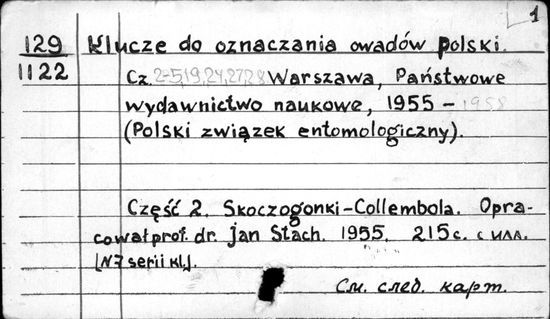 1
129 Klucze do oznaczania owadów polski.
1122 Cz. 2-5,19,24,27,28 Warszawa, Państwowe
wydawnictwo naukowe, 1955 - 1958
(Polski związek entomologiczny).
Część 2. Skoczogonki-Collembola. Opra-
cował prof. dr. Jan Stach. 1955. 215 с. с илл.
[N7 serii kl].
См. след. карт.